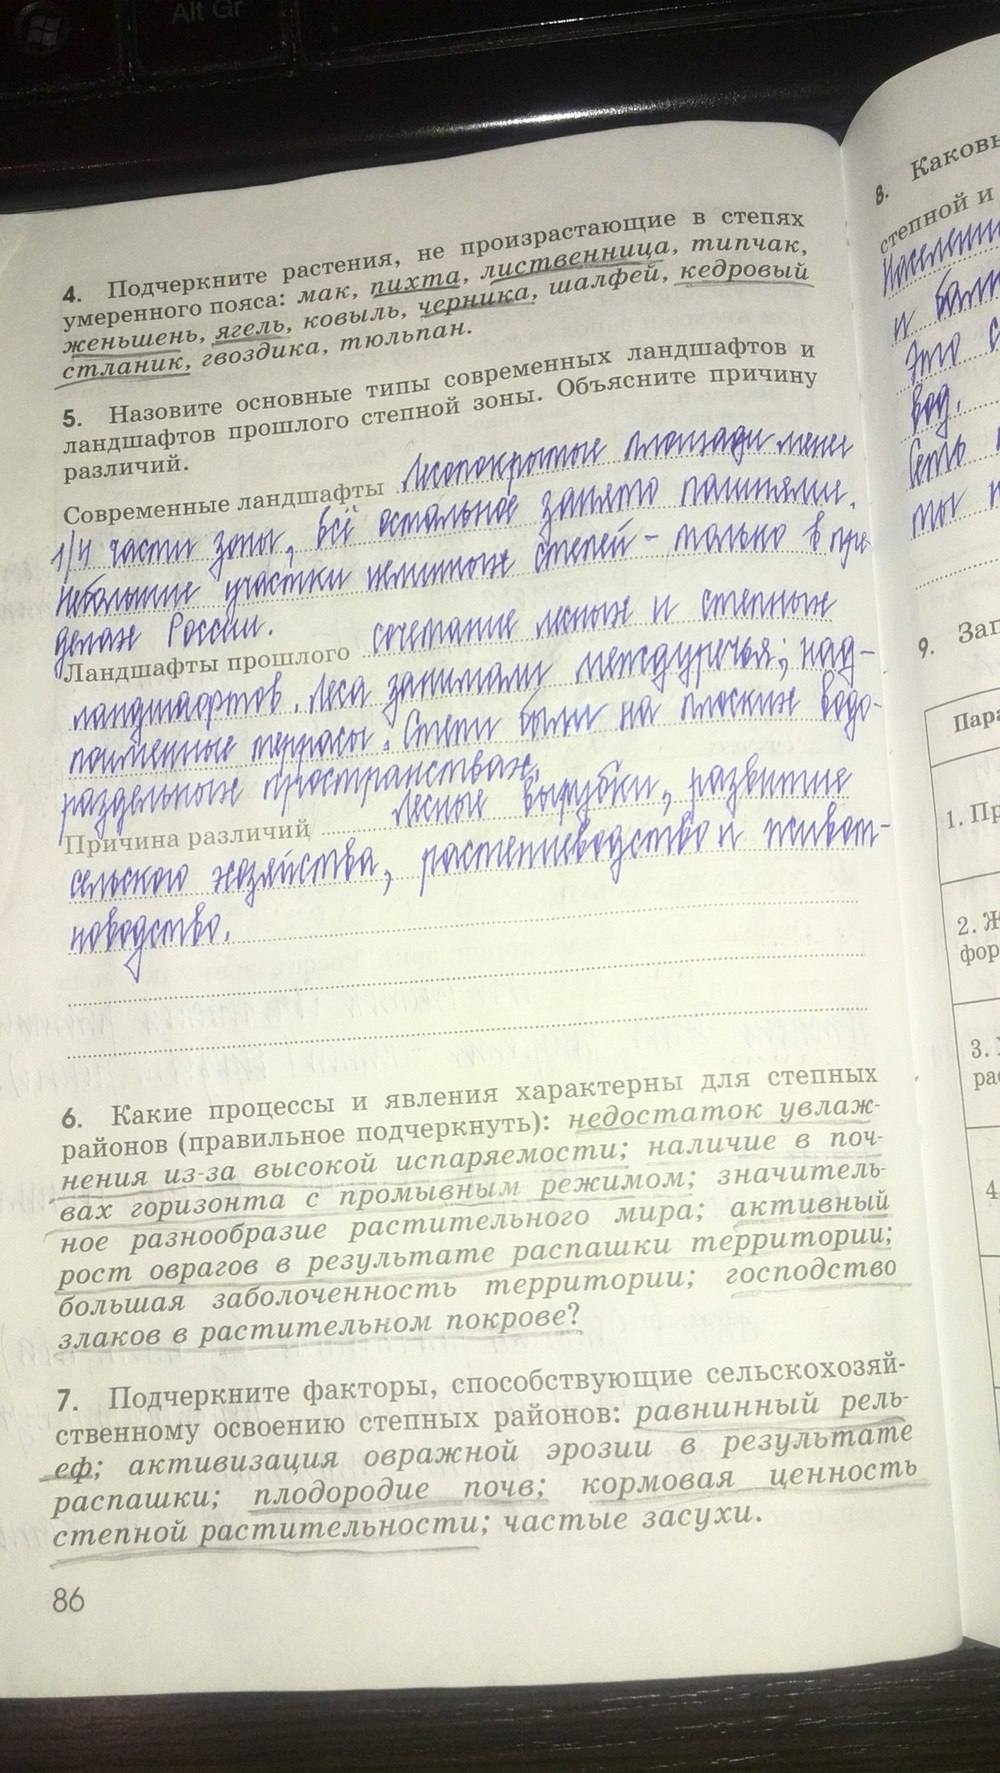 Alt Gr
4. Подчеркните растения, не произрастающие в степях
умеренного пояса: мак, пихта, лиственница, типчак,
женьшень, ягель, ковыль, черника, шалфей, кедровый
стланик, гвоздика, тюльпан.
5. Назовите основные типы современных ландшафтов и
ландшафтов прошлого степной зоны. Объясните причину
различий.
Современные ландшафты Лесопокрытые площади менее
1/4 части зоны, всё остальное занято пашнями.
Небольшие участки целинных степей - только в пре
делах России.
Ландшафты прошлого сочетание лесных и степных
ландшафтов. Леса занимали междуречья; над-
пойменные террасы. Степи были на плоских водо-
раздельных пространствах.
Причина различий лесные вырубки, развитие
сельского хозяйства, растениеводство и живот-
новодство.
6. Какие процессы и явления характерны для степных
районов (правильное подчеркнуть): недостаток увлаж-
нения из-за высокой испаряемости; наличие в поч-
вах горизонта с промывным режимом; значитель-
ное разнообразие растительного мира; активный
рост оврагов в результате распашки территории;
большая заболоченность территории; господство
злаков в растительном покрове?
7. Подчеркните факторы, способствующие сельскохозяй-
ственному освоению степных районов: равнинный рель-
еф; активизация овражной эрозии в результате
распашки; плодородие почв; кормовая ценность
степной растительности; частые засухи.
86
8. Каковы
степной и
Населени
и
Это с
вод.
Есть
мы
9. Зап
Пара
1. Пр
2. Ж
фор
3.
рас
4